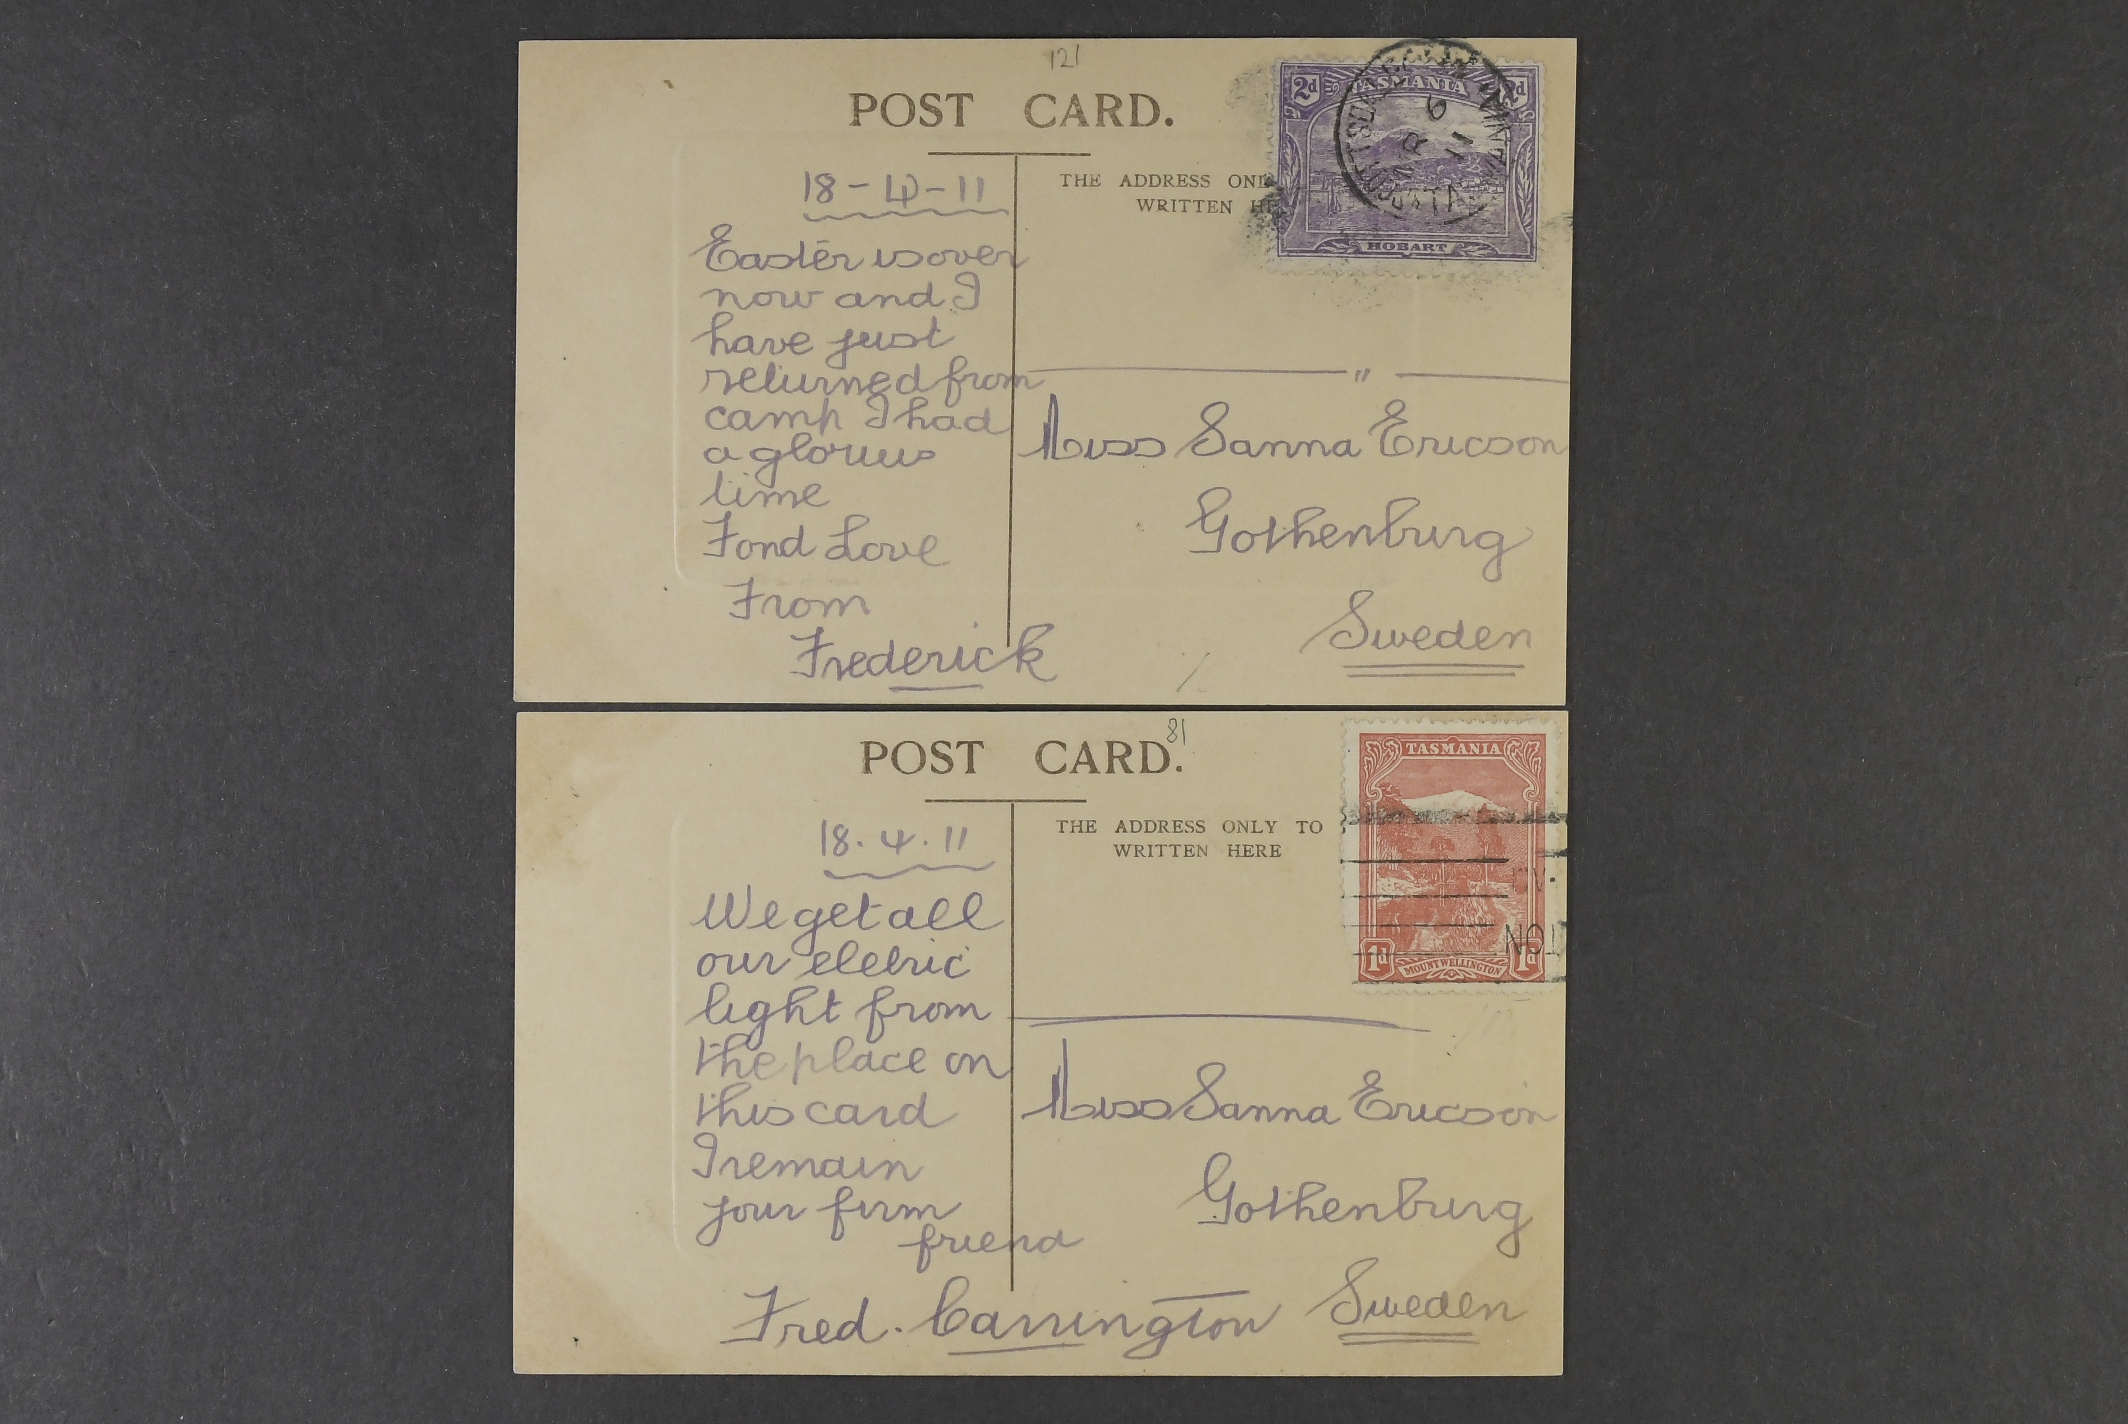 121
POST CARD.
2d TASMANIA 2d
MR 6 11
TASMANIA
HOBART
THE ADDRESS ONL
WRITTEN HE
18-4-11
Easter is over
now and I
have just
returned from
camp I had
a glorius
time
Fond Love
From
Frederick
"
Miss Sanna Ericson
Gothenburg
Sweden
81
POST CARD.
TASMANIA
1d MOUNT WELLINGTON 1d
THE ADDRESS ONLY TO
WRITTEN HERE
18.4.11
We get all
our eletric
light from
the place on
this card
I remain
your firm
friend
Fred. Carrington
Miss Sanna Ericson
Gothenburg
Sweden